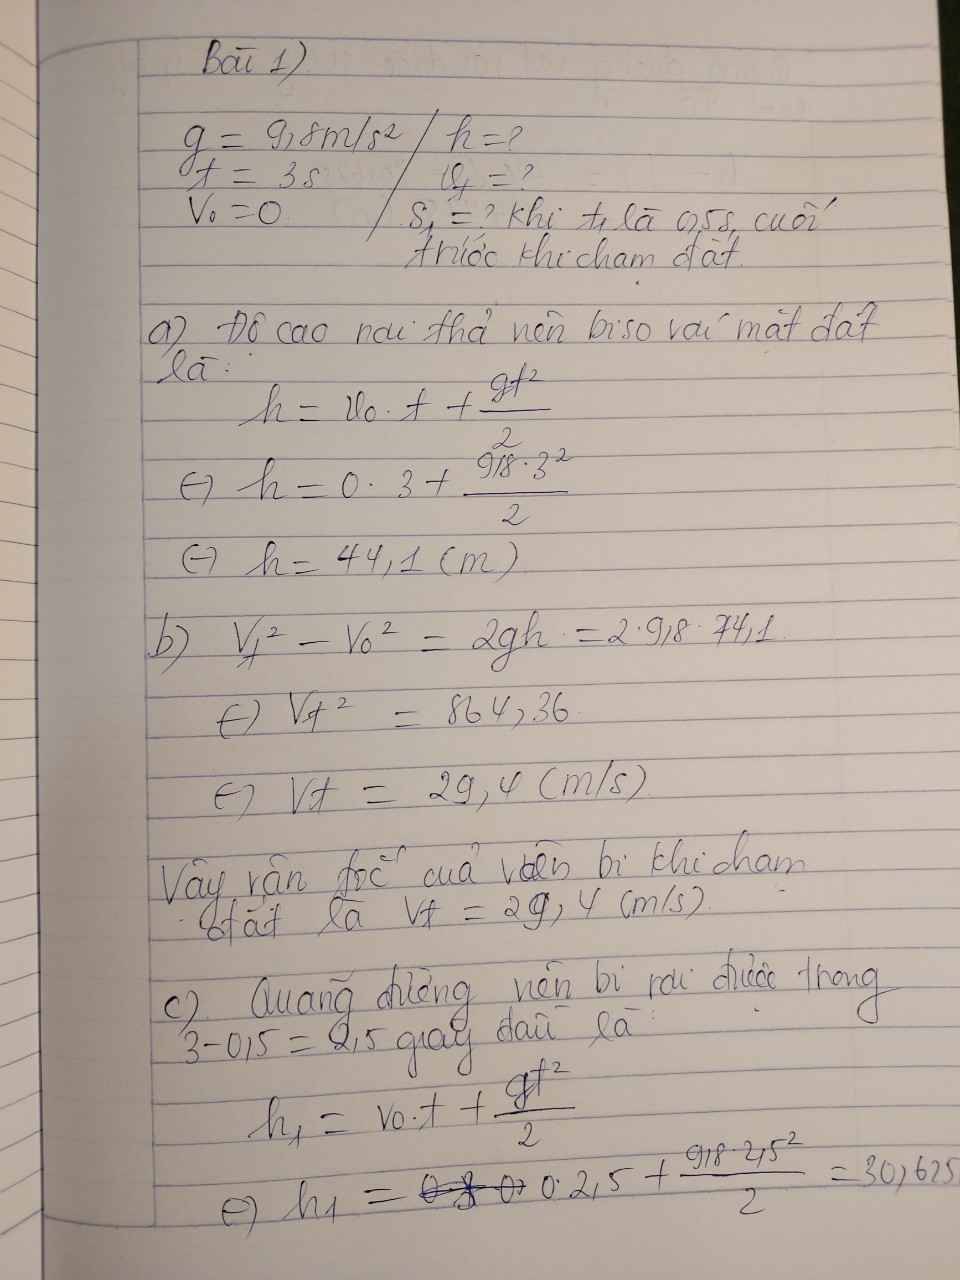 Bài 1)
g = 9,8m/s² / h = ?
t = 3s / vt = ?
V₀ = 0 / S₁ = ? khi t₁ là 0,5s cuối
trước khi chạm đất.
a) Độ cao nơi thả viên bi so với mặt đất
là:
h = v₀ . t + gt²/2
(=) h = 0 . 3 + 9,8 . 3²/2
(=) h = 44,1 (m)
b) Vt² – V₀² = 2gh = 2 . 9,8 . 44,1
(=) Vt² = 864,36
(=) Vt = 29,4 (m/s)
Vậy vận tốc của viên bi khi chạm
đất là Vt = 29,4 (m/s).
c) Quãng đường viên bi rơi được trong
3 - 0,5 = 2,5 giây đầu là:
h₁ = v₀ . t + gt²/2
(=) h₁ = 0 . 2,5 + 9,8 . 2,5²/2 = 30,625